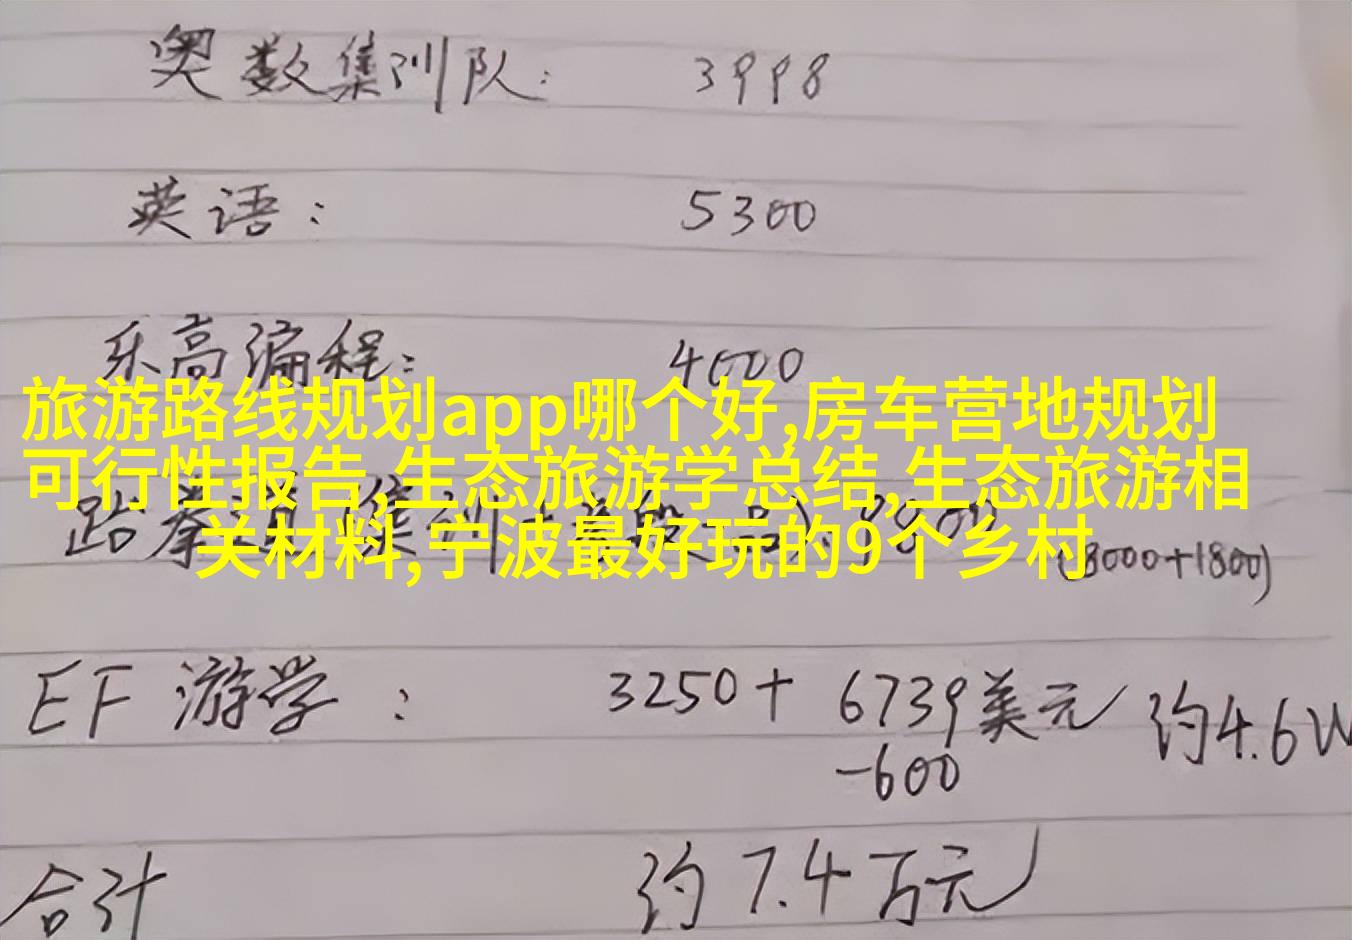 奥数集训队: 3998
英语: 5300
乐高编程: 4000
旅游路线规划app哪个好,房车营地规划
可行性报告,生态旅游学总结,生态旅游相
关材料,宁波最好玩的9个乡村
跆拳道 (3000+1800)
EF 游学: 3250+ 6739美元 约4.6W
-600
合计 约7.4万元